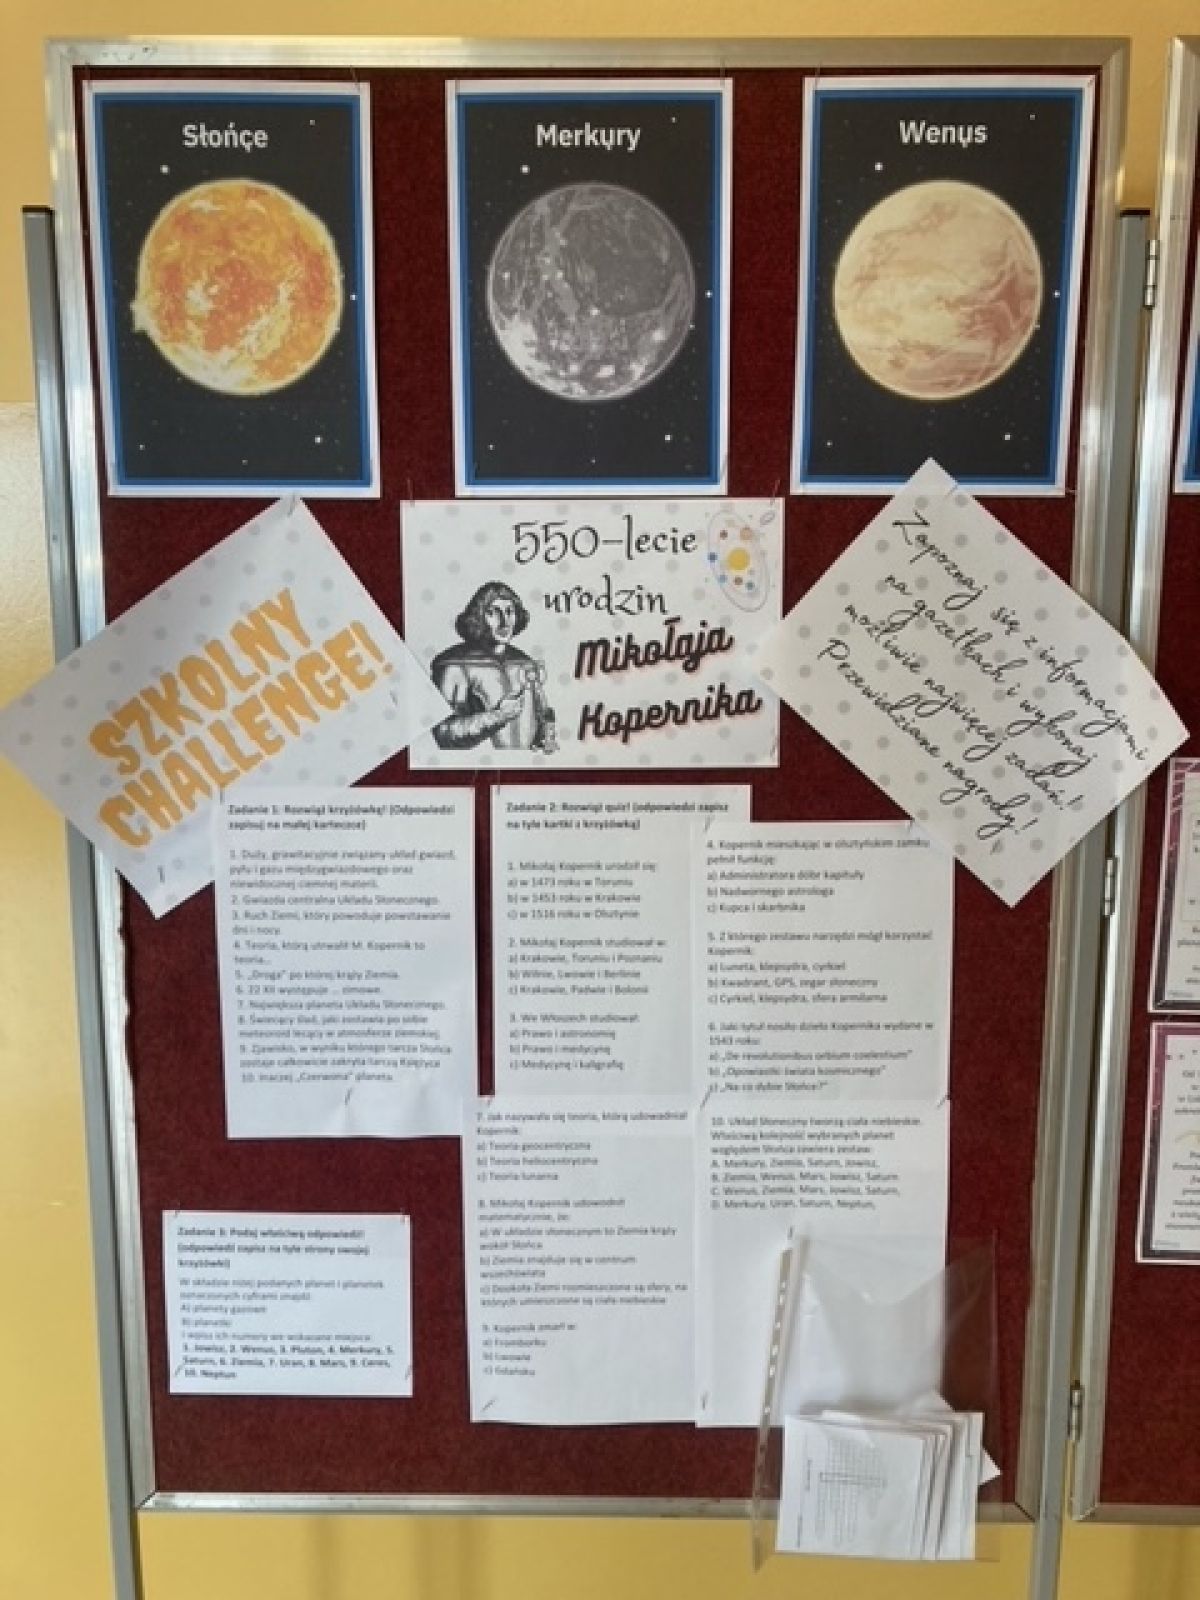 Słońce
Merkury
Wenus
SZKOLNY
CHALLENGE!
550-lecie
urodzin
Mikołaja
Kopernika
Zapoznaj się z informacjami
na gazetkach i wykonaj
możliwie najwięcej zadań!
Przewidziane nagrody!
Zadanie 1: Rozwiąż krzyżówkę! (Odpowiedzi
zapisuj na małej karteczce)
1. Duży, grawitacyjnie związany układ gwiazd,
pyłu i gazu międzygwiazdowego oraz
niewidocznej ciemnej materii.
2. Gwiazda centralna Układu Słonecznego.
3. Ruch Ziemi, który powoduje powstawanie
dni i nocy.
4. Teoria, którą utrwalił M. Kopernik to
teoria...
5. „Droga" po której krąży Ziemia.
6. 22 XII występuje ... zimowe.
7. Największa planeta Układu Słonecznego.
8. Świecący ślad, jaki zostawia po sobie
meteoroid lecący w atmosferze ziemskiej.
9. Zjawisko, w wyniku którego tarcza Słońca
zostaje całkowicie zakryta tarczą Księżyca
10. Inaczej „Czerwona" planeta.
Zadanie 2: Rozwiąż quiz! (odpowiedzi zapisz
na tyle kartki z krzyżówką)
1. Mikołaj Kopernik urodził się:
a) w 1473 roku w Toruniu
b) w 1453 roku w Krakowie
c) w 1516 roku w Olsztynie
2. Mikołaj Kopernik studiował w:
a) Krakowie, Toruniu i Poznaniu
b) Wilnie, Lwowie i Berlinie
c) Krakowie, Padwie i Bolonii
3. We Włoszech studiował:
a) Prawo i astronomię
b) Prawo i medycynę
c) Medycynę i kaligrafię
4. Kopernik mieszkając w olsztyńskim zamku
pełnił funkcję:
a) Administratora dóbr kapituły
b) Nadwornego astrologa
c) Kupca i skarbnika
5. Z którego zestawu narzędzi mógł korzystać
Kopernik:
a) Luneta, klepsydra, cyrkiel
b) Kwadrant, GPS, zegar słoneczny
c) Cyrkiel, klepsydra, sfera armilarna
6. Jaki tytuł nosiło dzieło Kopernika wydane w
1543 roku:
a) „De revolutionibus orbium coelestium"
b) „Opowiastki świata kosmicznego"
c) „Na co dybie Słońce?"
7. Jak nazywała się teoria, którą udowadniał
Kopernik:
a) Teoria geocentryczna
b) Teoria heliocentryczna
c) Teoria lunarna
8. Mikołaj Kopernik udowodnił
matematycznie, że:
a) W układzie słonecznym to Ziemia krąży
wokół Słońca
b) Ziemia znajduje się w centrum
wszechświata
c) Dookoła Ziemi rozmieszczone są sfery, na
których umieszczone są ciała niebieskie
9. Kopernik zmarł w:
a) Fromborku
b) Lwowie
c) Gdańsku
10. Układ Słoneczny tworzą ciała niebieskie.
Właściwą kolejność wybranych planet
względem Słońca zawiera zestaw:
A. Merkury, Ziemia, Saturn, Jowisz,
B. Ziemia, Wenus, Mars, Jowisz, Saturn
C. Wenus, Ziemia, Mars, Jowisz, Saturn,
D. Merkury, Uran, Saturn, Neptun,
Zadanie 3: Podaj właściwą odpowiedź!
(odpowiedzi zapisz na tyle strony swojej
krzyżówki)
W składzie niżej podanych planet i planetek
oznaczonych cyframi znajdź:
A) planety gazowe
B) planetki
i wpisz ich numery we wskazane miejsce:
1. Jowisz, 2. Wenus, 3. Pluton, 4. Merkury, 5.
Saturn, 6. Ziemia, 7. Uran, 8. Mars, 9. Ceres,
10. Neptun